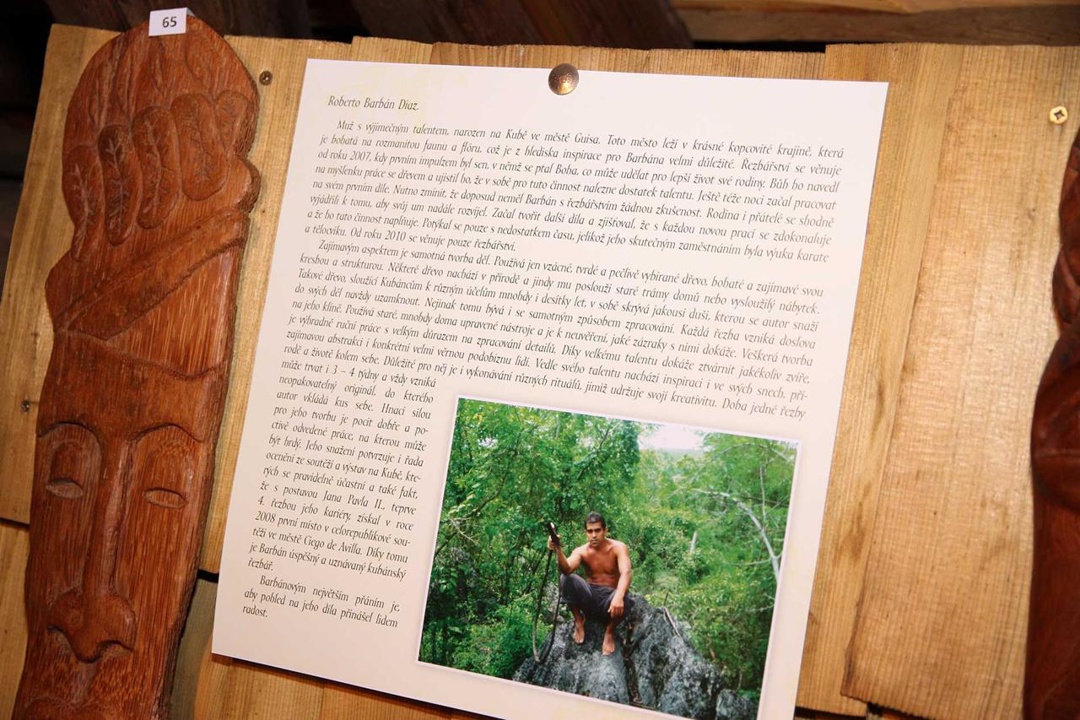 65
Roberto Barbán Diaz.
Muž s výjimečným talentem, narozen na Kubě ve městě Guisa. Toto město leží v krásné kopcovité krajině, která
je bohatá na rozmanitou faunu a flóru, což je z hlediska inspirace pro Barbána velmi důležité. Řezbářství se věnuje
od roku 2007, kdy prvním impulzem byl sen, v němž se ptal Boha, co může udělat pro lepší život své rodiny. Bůh ho navedl
na myšlenku práce se dřevem a ujistil ho, že v sobě pro tuto činnost nalezne dostatek talentu. Ještě téže noci začal pracovat
na svém prvním díle. Nutno zmínit, že doposud neměl Barbán s řezbářstvím žádnou zkušenost. Rodina i přátelé se shodně
vyjádřili k tomu, aby svůj um nadále rozvíjel. Začal tvořit další díla a zjišťoval, že s každou novou prací se zdokonaluje
a že ho tato činnost naplňuje. Potýkal se pouze s nedostatkem času, jelikož jeho skutečným zaměstnáním byla výuka karate
a tělocviku. Od roku 2010 se věnuje pouze řezbářství.
Zajímavým aspektem je samotná tvorba děl. Používá jen vzácné, tvrdé a pečlivě vybírané dřevo, bohaté a zajímavé svou
kresbou a strukturou. Některé dřevo nachází v přírodě a jindy mu poslouží staré trámy domů nebo vysloužilý nábytek.
Takové dřevo, sloužící Kubáncům k různým účelům mnohdy i desítky let, v sobě skrývá jakousi duši, kterou se autor snaží
do svých děl navždy uzamknout. Nejinak tomu bývá i se samotným způsobem zpracování. Každá řezba vzniká doslova
na jeho klíně. Používá staré, mnohdy doma upravené nástroje a je k neuvěření, jaké zázraky s nimi dokáže. Veškerá tvorba
je výhradně ruční práce s velkým důrazem na zpracování detailů. Díky velkému talentu dokáže ztvárnit jakékoliv zvíře,
zajímavou abstrakci i konkrétní velmi věrnou podobiznu lidí. Vedle svého talentu nachází inspiraci i ve svých snech, pří-
rodě a životě kolem sebe. Důležité pro něj je i vykonávání různých rituálů, jimiž udržuje svoji kreativitu. Doba jedné řezby
může trvat i 3 – 4 týdny a vždy vzniká
neopakovatelný originál, do kterého
autor vkládá kus sebe. Hnací silou
pro jeho tvorbu je pocit dobře a po-
ctivě odvedené práce, na kterou může
být hrdý. Jeho snažení potvrzuje i řada
ocenění ze soutěží a výstav na Kubě, kte-
rých se pravidelně účastní a také fakt,
že s postavou Jana Pavla II., teprve
4. řezbou jeho kariéry, získal v roce
2008 první místo v celorepublikové sou-
těži ve městě Ciego de Avilla. Díky tomu
je Barbán úspěšný a uznávaný kubánský
řezbář.
Barbánovým největším přáním je,
aby pohled na jeho díla přinášel lidem
radost.